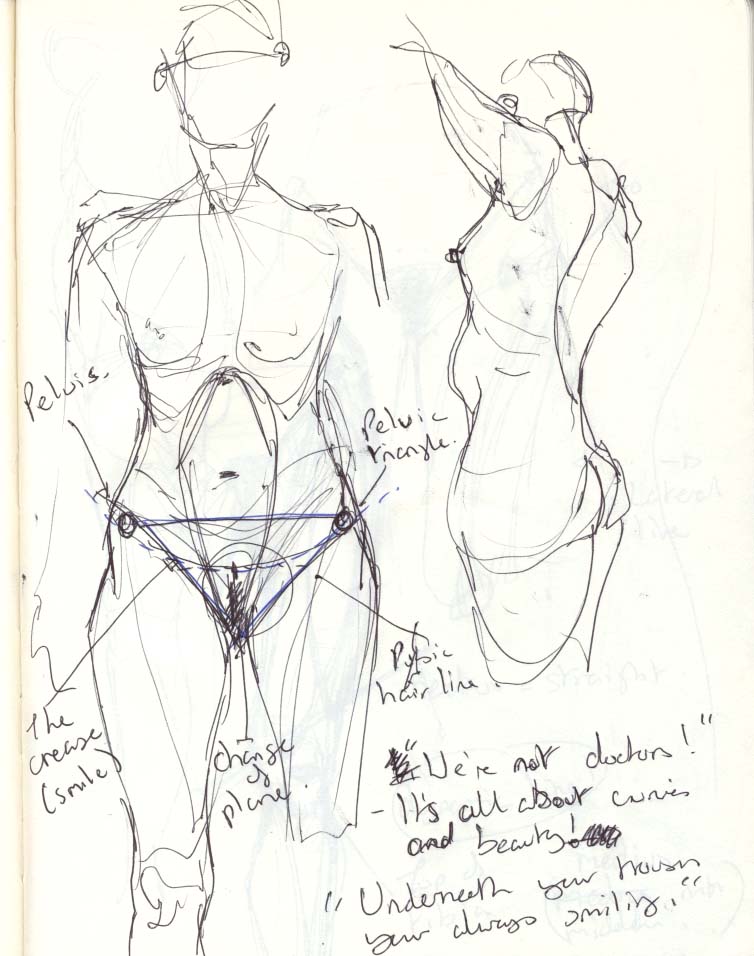 Pelvis.
Pelvic
triangle.
Pubic
hair line
The
crease
(smile)
change
of
plane.
"We're not doctors!"
- It's all about curves
and beauty!
"Underneath your trousers
your always smiling."
→
Lateral
line
straight